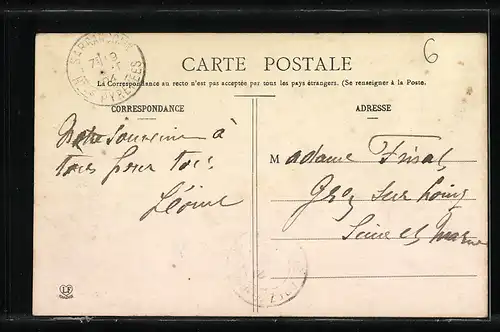 CARTE POSTALE
La Correspondance au recto n'est pas acceptée par tous les pays étrangers. (Se renseigner à la Poste.
CORRESPONDANCE
ADRESSE
6
souvenir à
tous pour tous
Léonie
Madame
Grez sur Loing
Seine et Marne
PYRENEES
LF